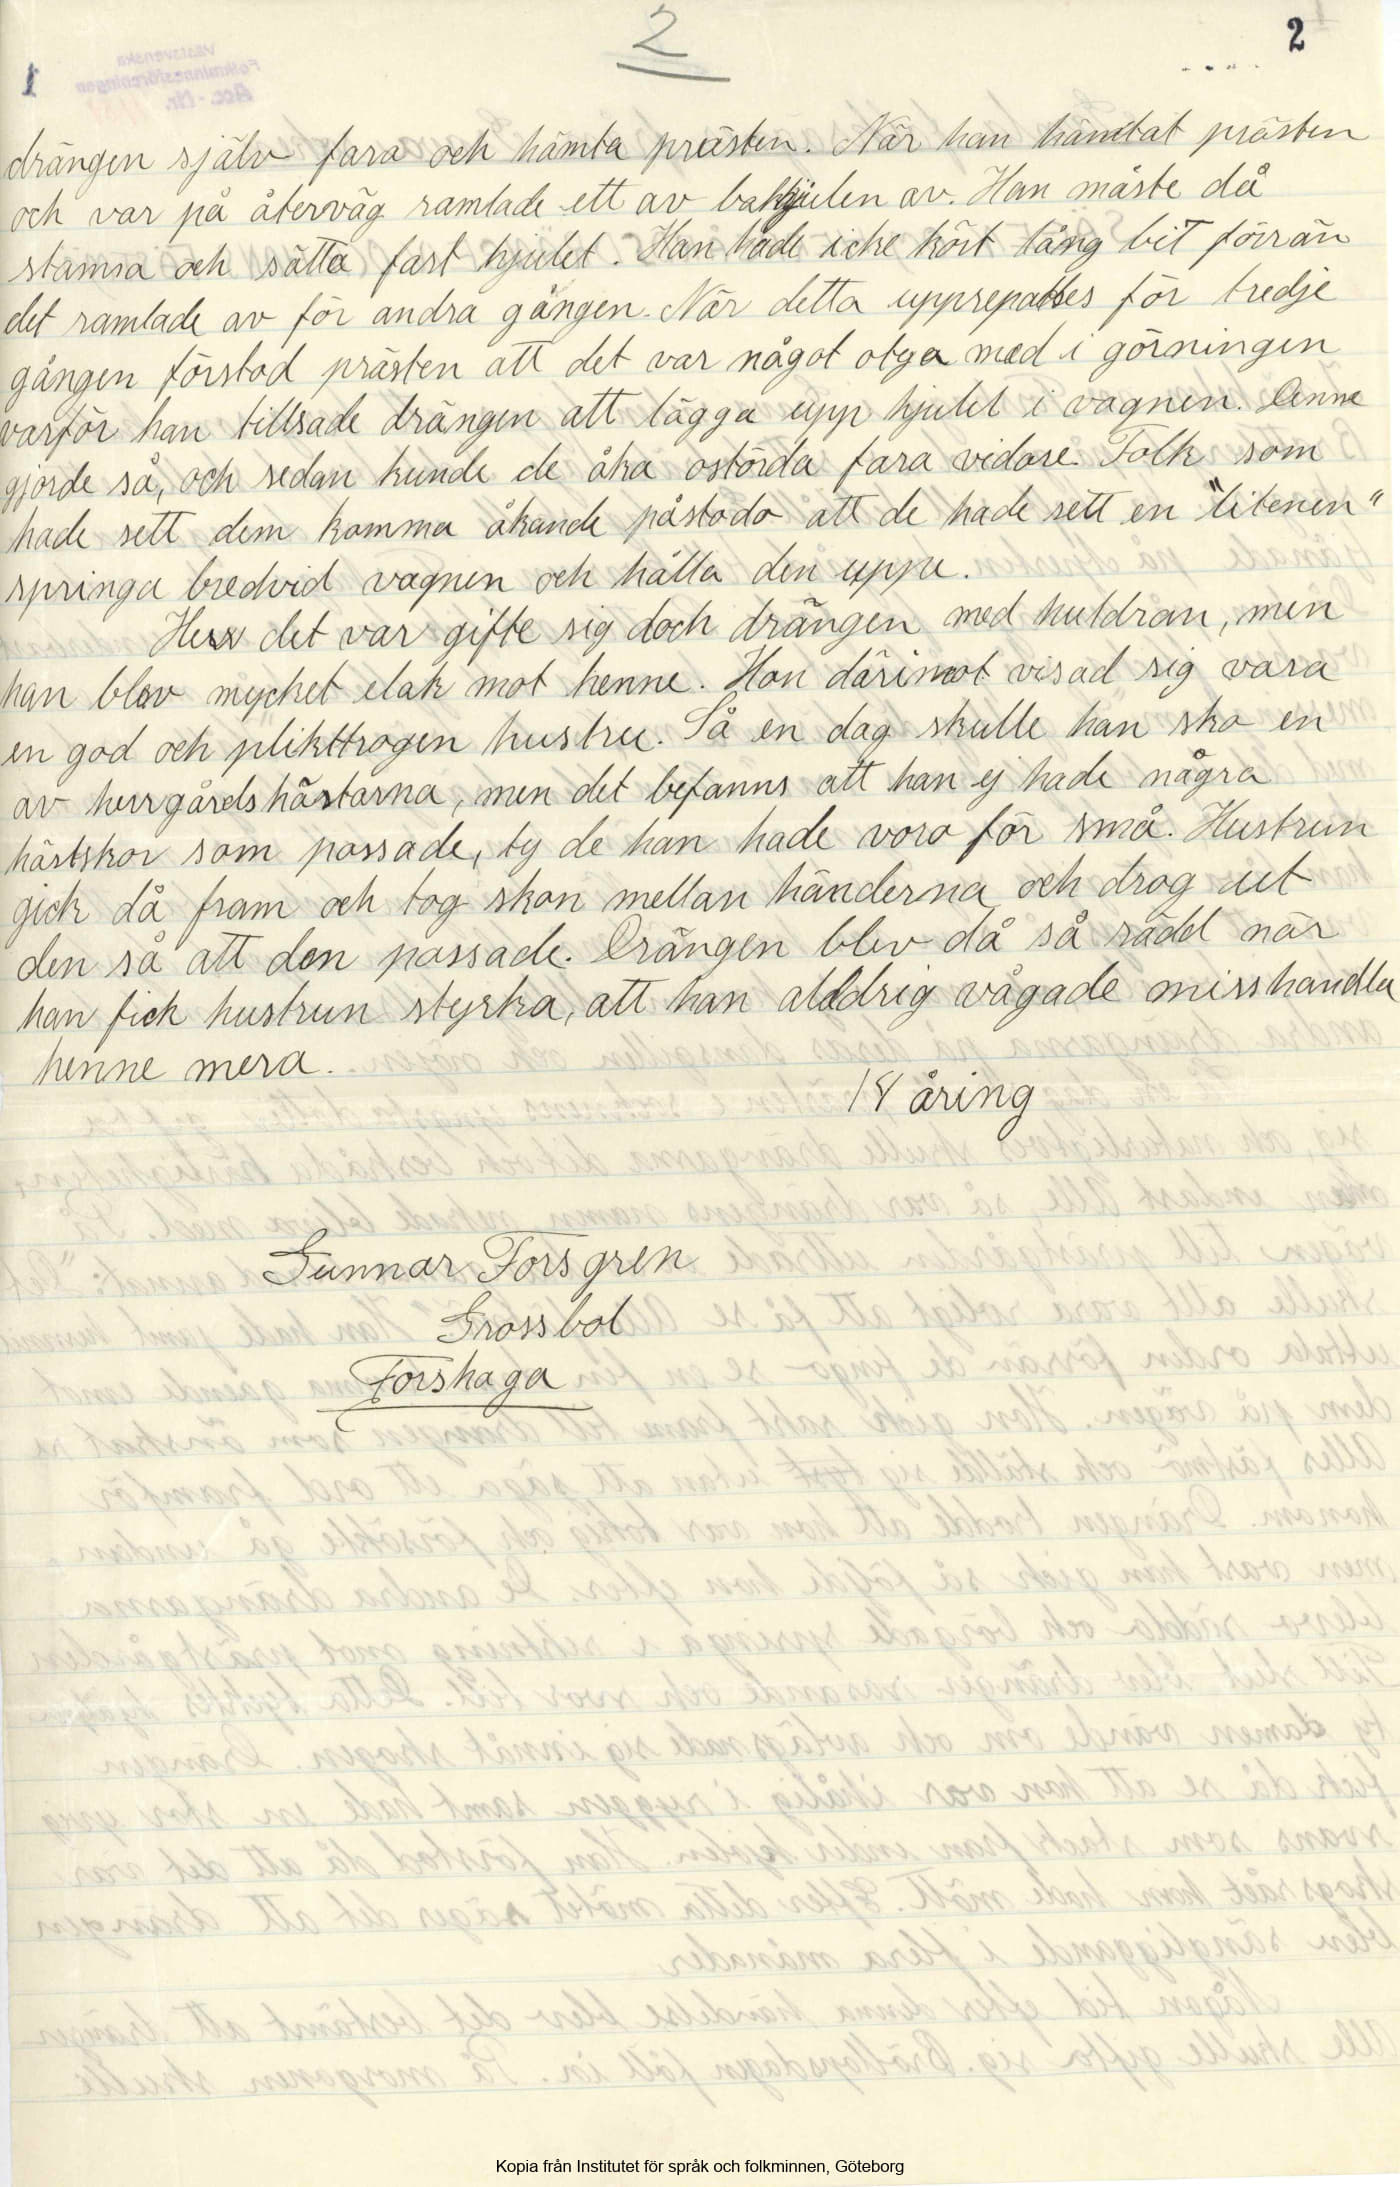 2
2
drängen själv fara och hämta prästen. När han hämtat prästen
och var på återväg ramlade ett av bakhjulen av. Han måste då
stanna och sätta fast hjulet. Han hade icke kört lång bit förrän
det ramlade av för andra gången. När detta upprepades för tredje
gången förstod prästen att det var något otga med i görningen
varför han tillsade drängen att lägga upp hjulet i vagnen. Denne
gjorde så, och sedan kunde de åka ostörda fara vidare. Folk som
hade sett dem komma åkande påstodo att de hade sett en "litenen"
springa bredvid vagnen och hålla den uppe.
Hur det var gifte sig doch drängen med huldran, men
han blev mycket elak mot henne. Hon därimot visad sig vara
en god och plikttrogen hustru. Så en dag skulle han sko en
av herrgårdshästarna, men det befanns att han ej hade några
hästskor som passade, ty de han hade voro för små. Hustrun
gick då fram och tog skon mellan händerna och drog ut
den så att den passade. Drängen blev då så rädd när
han fick hustrun styrka, att han alldrig vågade misshandla
henne mera.
18 åring
Gunnar Forsgren
Grossbol
Forshaga
Kopia från Institutet för språk och folkminnen, Göteborg